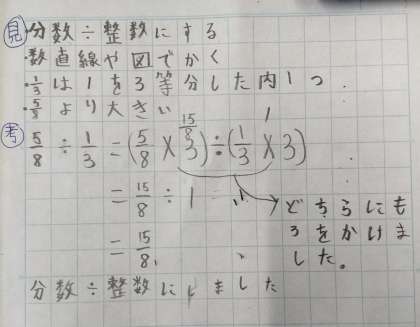 見 ・分数÷整数にする
・数直線や図でかく
・1/3は1を3等分した内1つ
・5/8より大きい
考 5/8÷1/3=(5/8×3)÷(1/3×3)
15/8 1
=15/8÷1
どちらにも
3をかけま
した。
=15/8
分数÷整数にしました